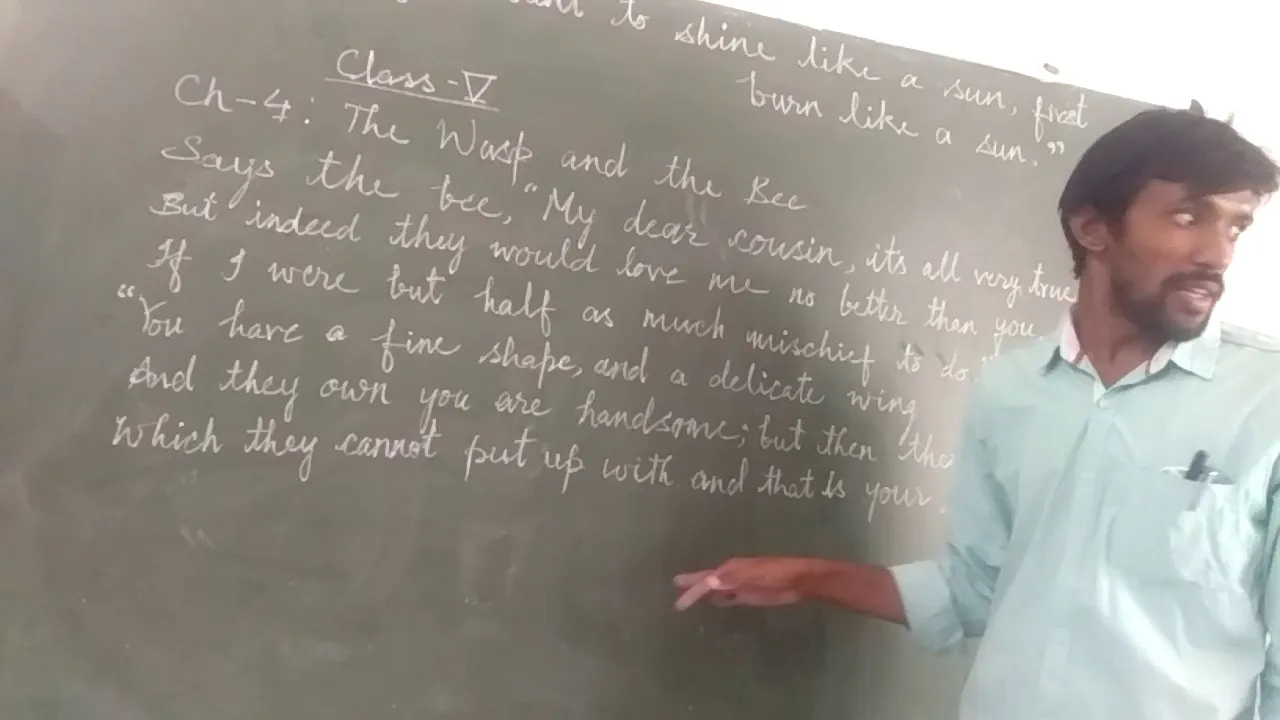 to shine like a sun, first
burn like a sun."
Class-V
Ch-4: The Wasp and the Bee
Says the bee, "My dear cousin, it's all very true
But indeed they would love me no better than you
If I were but half as much mischief to do."
"You have a fine shape, and a delicate wing
And they own you are handsome; but then the
Which they cannot put up with and that is your